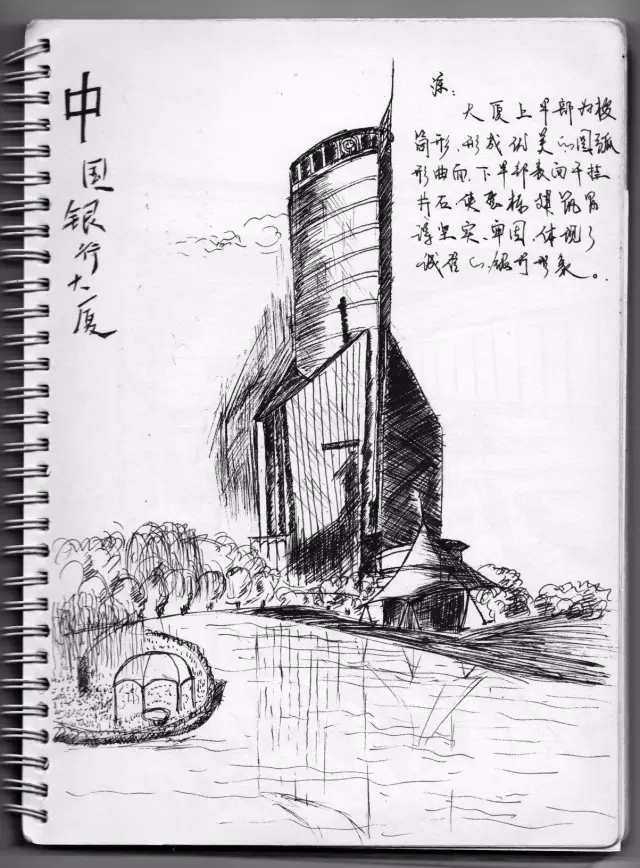 中国银行大厦
大厦上半部为
筒形,形成优美的圆弧
形曲面,下半部表面干挂
石,使整栋建筑显
得坚实、牢固,体现了
诚信的银行形象。